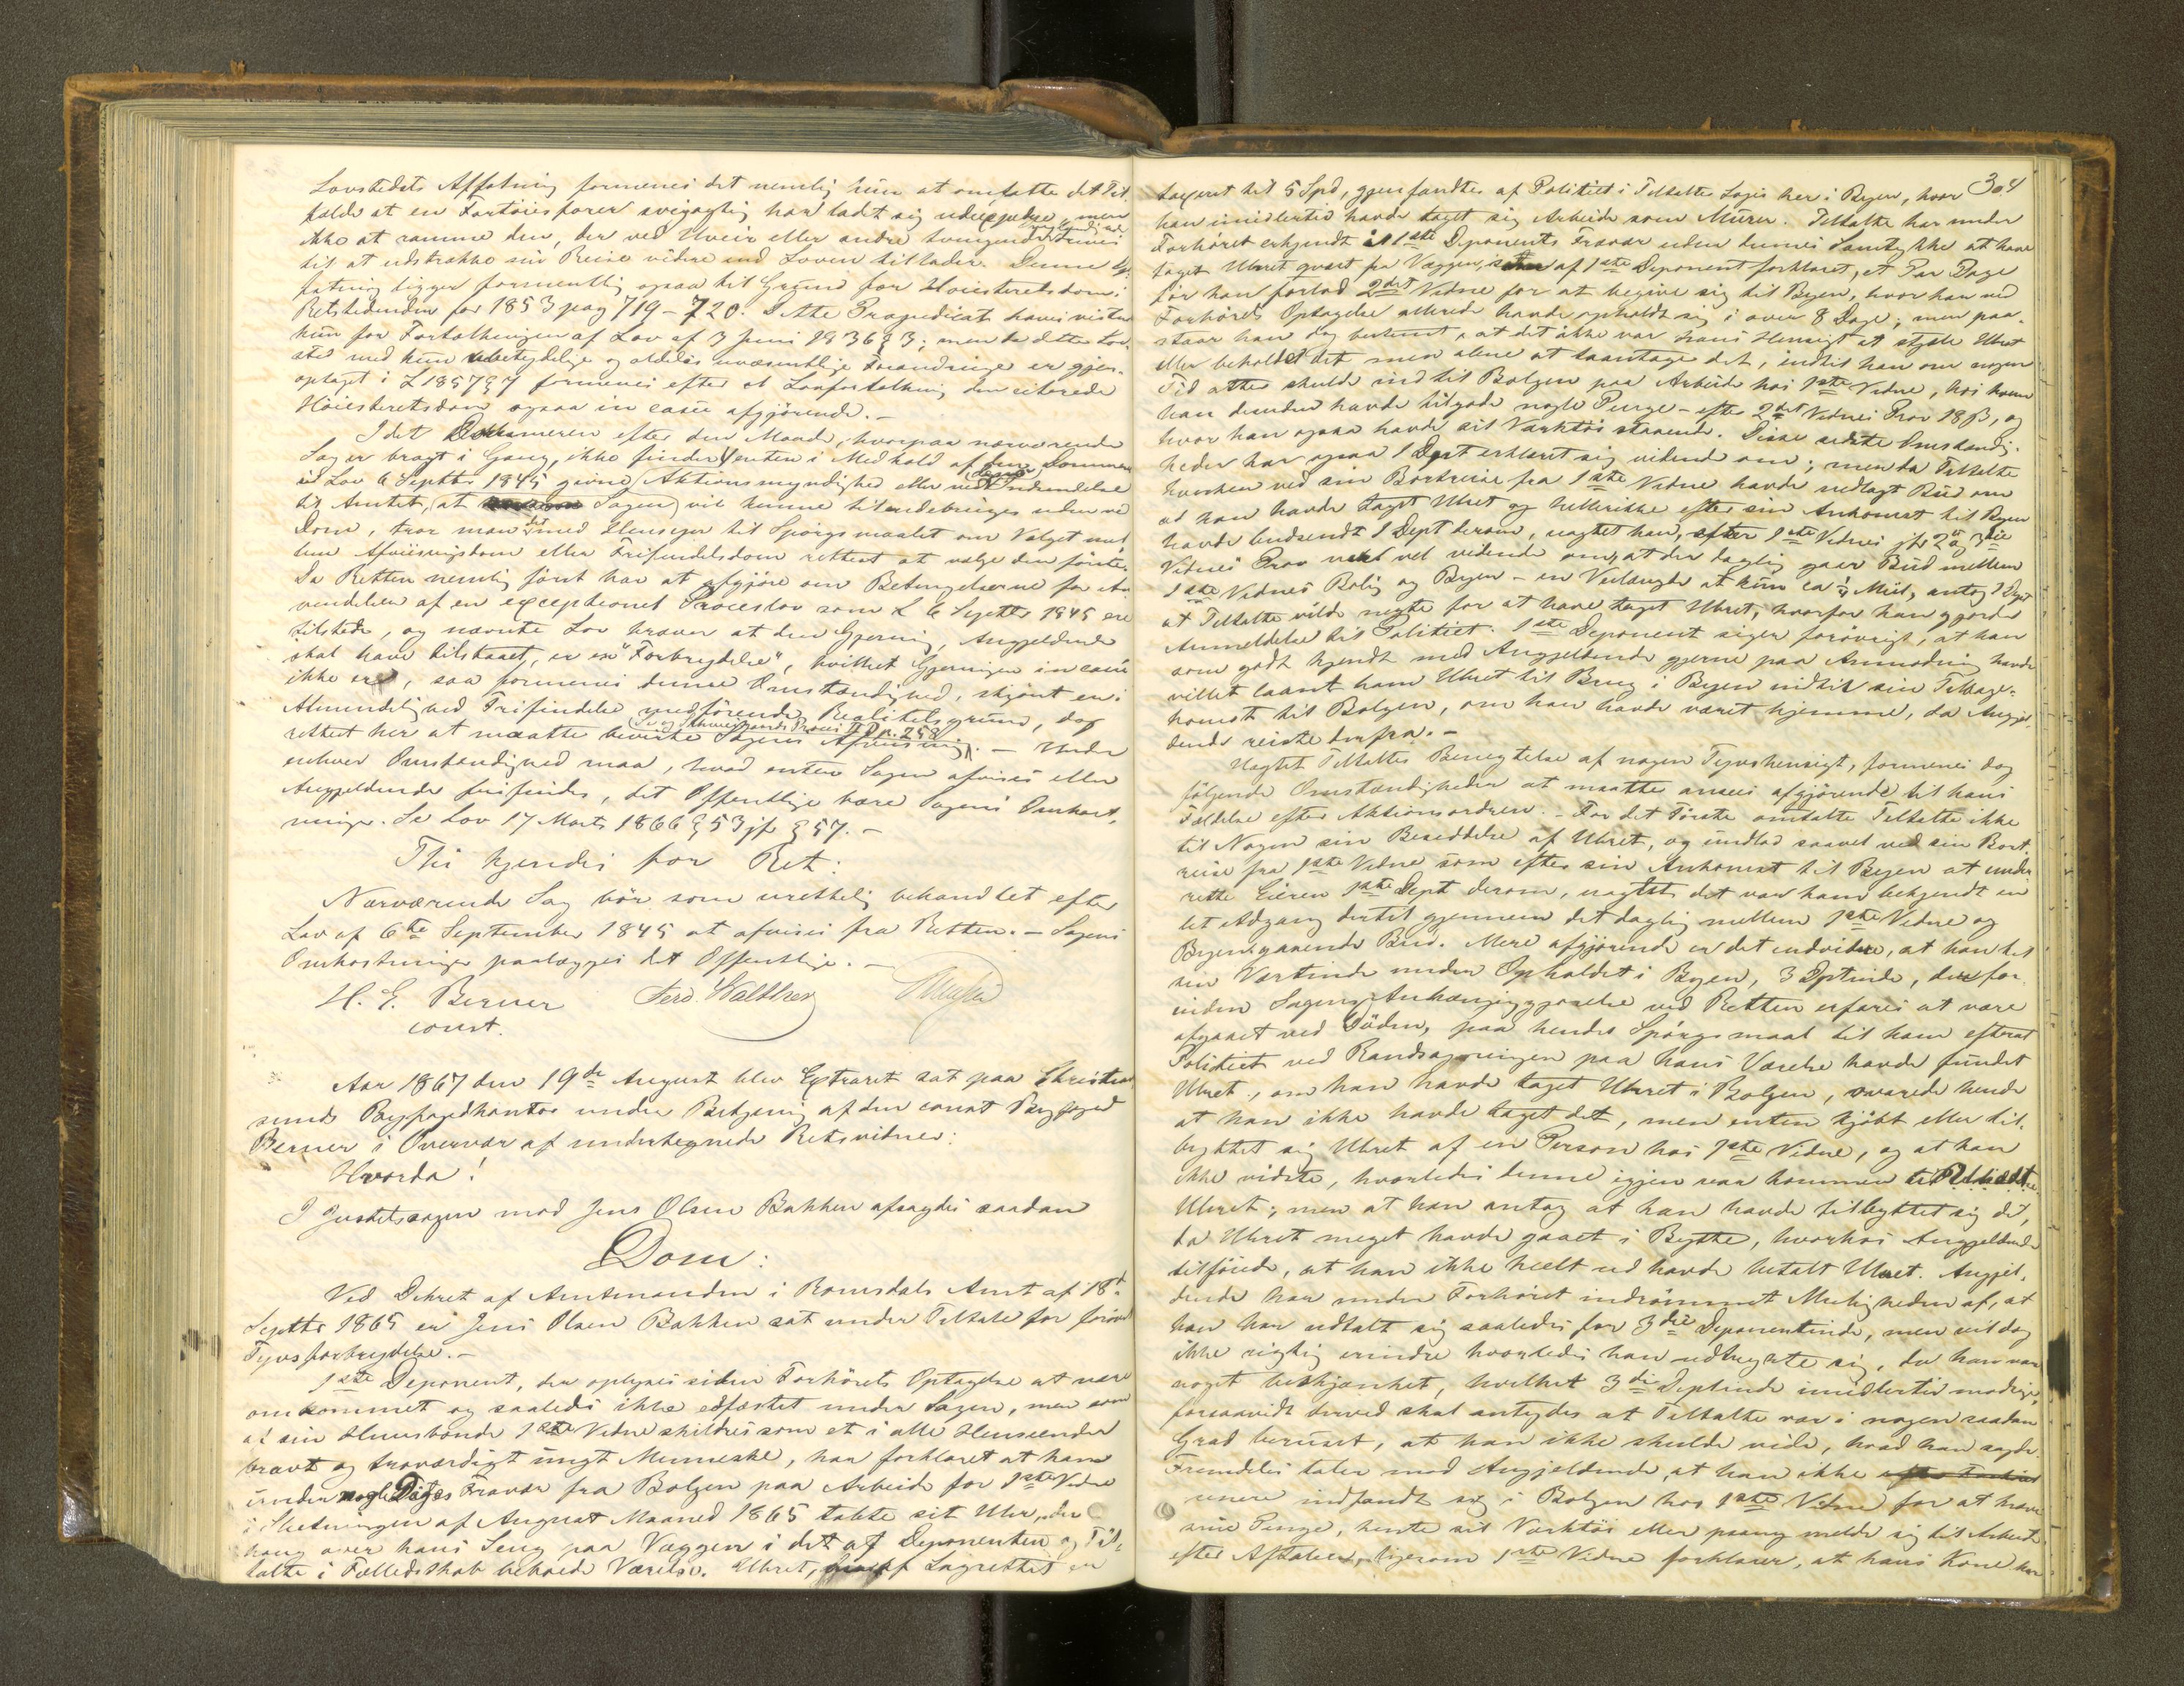 Lovstedets Affatning formenes det nemlig kun at omfatte det Til-
fælde at en Fartöiesfører svigagtig har ladet sig udexpedere, men
ikke at ramme den, der ved Uveir eller andre tvingende Omstændigheder
til at udstrække sin Reise videre end Loven tillader. Denne
fatning ligger formentlig ogsaa til Grund for Høiesteretsdom i
Retstidenden for 1853 pag 719-720. Dette Præjudicat haves vistnok
kun for Fortolkningen af Lov af 3 Juni 1836 § 3; men da dette Lov-
sted med kun ubetydelige og aldeles uvæsentlige Forandringer er gjen-
optaget i L 1857 § 7 formenes efter et Lovfortolkning den citerede
Höiesteretsdom ogsaa in casu afgjörende. -
Idet Dekumeren efter den Maade, hvorpaa nærværende
Sag er bragt i Gang, ikke finder enten i Medhold af den Dommeren
ved Lov 6 Septbr 1845 givne Aktionsmyndighed eller ved dens Indsendelse
til Amtet, at Sagen vil kunne tilendebringes uden ved
Dom, tror man det med Hensyn til Spörgsmaalet om Valget mel-
lem Afviisningsdom eller Frifindelsesdom rettest at vælge den første.
Da Retten nemlig först har at afgjöre om Betingelserne for An-
vendelsen af en exceptionel Proceslov som L 6 Septbr 1845 ere
tilstede, og nævnte Lov kræver at den Gjerning, Angjeldende
skal have tilstaaet, er en "Forbrydelse", hvilket Gjerningen in casu
ikke er, saa formenes denne Omstændighed, skjönt en i
Almindelighed Frifindelse medförende Realitetsgrund, dog
rettest her at maatte bevirke Sagens Afviisning. - Under
enhver Omstændighed maa, hvad enten Sagen afvises eller
Angjeldende frifindes, det Offentlige bære Sagens Omkost-
ninger. Se Lov 17 Marts 1866 § 53 jfr § 57. -
Thi kjendes for Ret:
Nærværende Sag bör som urettelig behandlet efter
Lov af 6te September 1845 at afvises fra Retten. - Sagens
Omkostninger paalægges det Offentlige. -
H. E. Berner Ferd. Walther
const.
Aar 1867 den 19de August blev Extraret sat paa Christian
sunds Byfogedkontor under Betjening af den const Byfoged
Berner i Overvær af undertegnede Retsvidner:
Hvorda!
I Justitssagen mod Jens Olsen Bakken afsagdes saadan
Dom:
Ved Dekret af Amtmanden i Romsdals Amt af 18d
Septbr 1865 er Jens Olsen Bakken sat under Tiltale for forövet
Tyvsforbrydelse. -
1ste Deponent, der oplyses siden Forhörets Optagelse at være
omkommet og saaledes ikke edfæstet under Sagen, men som
af sin Huusbonde 1ste Vidne skildres som et i alle Henseender
bravt og troværdigt ungt Menneske, har forklaret at han
under nogle Dages Fravær fra Bolgen paa Arbeide for 1ste Vidne
i Slutningen af August Maaned 1865 tabte sit Uhr, der
hang over hans Seng paa Væggen i det af Deponenten og Til-
talte i Fælledsskab beboede Værelse. Uhret, der af Lagrettet er
304
taxeret til 5 Spd, gjenfandtes af Politiet i Tiltaltes Logis her i Byen, hvor
han imidlertid havde taget sig Arbeide som Murer. Tiltalte har under
Forhöret erkjendt i 1ste Deponents Fravær uden dennes Samtykke at have
taget Uhret qvæst. fra Væggen, som af 1ste Deponent forklaret, et Par Dage
för han forlod 2det Vidne for at begive sig til Byen, hvor han ved
Forhörets Optagelse allerede havde opholdt sig i over 8 Dage; men paa-
staar han dog bestemt, at det ikke var hans Hensigt at stjæle Uhret
eller beholdet det men alene at laantage det, indtil han om nogen
Tid atter skulde ind til Bolgen paa Arbeide hos 1ste Vidne, hos hvem
han desuden havde tilgode nogle Penge - efter 2det Vidnes Prov 18 β, og
hvor han ogsaa havde sit Værktöi staaende. Disse sidste Omstændig-
heder har ogsaa 1 Dpt erklæret sig vidende om; men da Tiltalte
hverken ved sin Bortreise fra 1ste Vidne havde nedlagt Bud om
at han havde taget Uhret og hellerikke efter sin Ankomst til Byen
havde budsendt 1 Dept derom, uagtet han, efter 1ste Vidnes jfr 2 og 3die
Vidnes Prov vel vidende om, at der daglig gaar Bud mellem
1ste Vidnes Bolig og Byen - en Veilængde at kun ca ¼ Miil, antog 1 Dpt
at Tiltalte vilde negte for at have taget Uhret, hvorfor han gjorde
Anmeldelse til Politiet. 1ste Deponent siger forövrigt, at han
som godt kjendt med Angjeldende gjerne paa Anmodning havde
villet laant ham Uhret til Brug i Byen indtil sin Tilbage-
komst til Bolgen, om han havde været hjemme, da Angjel-
dende reiste derfra. -
Uagtet Tiltaltes Benegtelse af nogen Tyvshensigt, formenes dog
fölgende Omstændigheder at maatte ansees afgjörende til hans
Fældelse efter Aktionsordren. - For det Förste omtalte Tiltalte ikke
til Nogen sin Besiddelse af Uhret, og undlod saavel ved sin Bort-
reise fra 1ste Vidne som efter sin Ankomst til Byen at under
rette Eieren 1ste Dept derom, uagtet det var ham bekjendt en
let Adgang dertil gjennem det daglig mellem 1ste Vidne og
Byen gaaende Bud. Mere afgjörende er det endvidere, at han til
sin Værtinde under Opholdet i Byen, 3 Dptinde, der for
inden Sagens Anhængiggjörelse ved Retten erfares at være
afgaaet ved Döden, paa hendes Spörgsmaal til ham efterat
Politiet ved Randsagningen paa hans Værelse havde fundet
Uhret, om han havde taget Uhret i Bolgen, svarede hende
at han ikke havde taget det, men enten kjöbt eller til-
byttet sig Uhret af en Person hos 1ste Vidne, og at han
ikke vidste, hvorledes denne igjen var kommen til
Uhret; men at han antog at han havde tilbyttet sig det,
da Uhret meget havde gaaet i Bytte, hvorhos Angjeldende
tilföiede, at han ikke heelt ud havde betalt Uhret. Angjel-
dende har under Forhöret indrömmet Muligheden af, at
han har udtalt sig saaledes for 3die Deponentinde, men vil dog
ikke rigtig erindre hvorledes han udtrykte sig, da han var
noget beskjænket, hvilket 3die Deptinde imidlertid modsiger,
forsaavidt derved skal antydes at Tiltalte var i nogen saadan
Grad beruset, at han ikke skulde vide, hvad han sagde.
Fremdeles taler mod Angjeldende, at han ikke
senere indfandt sig i Bolgen hos 1ste Vidne for at hæve
sine Penge, hente sit Værktöi eller paany melde sig til Arbeide
efter Aftalen, ligesom 1ste Vidne forklarer, at hans Kone har